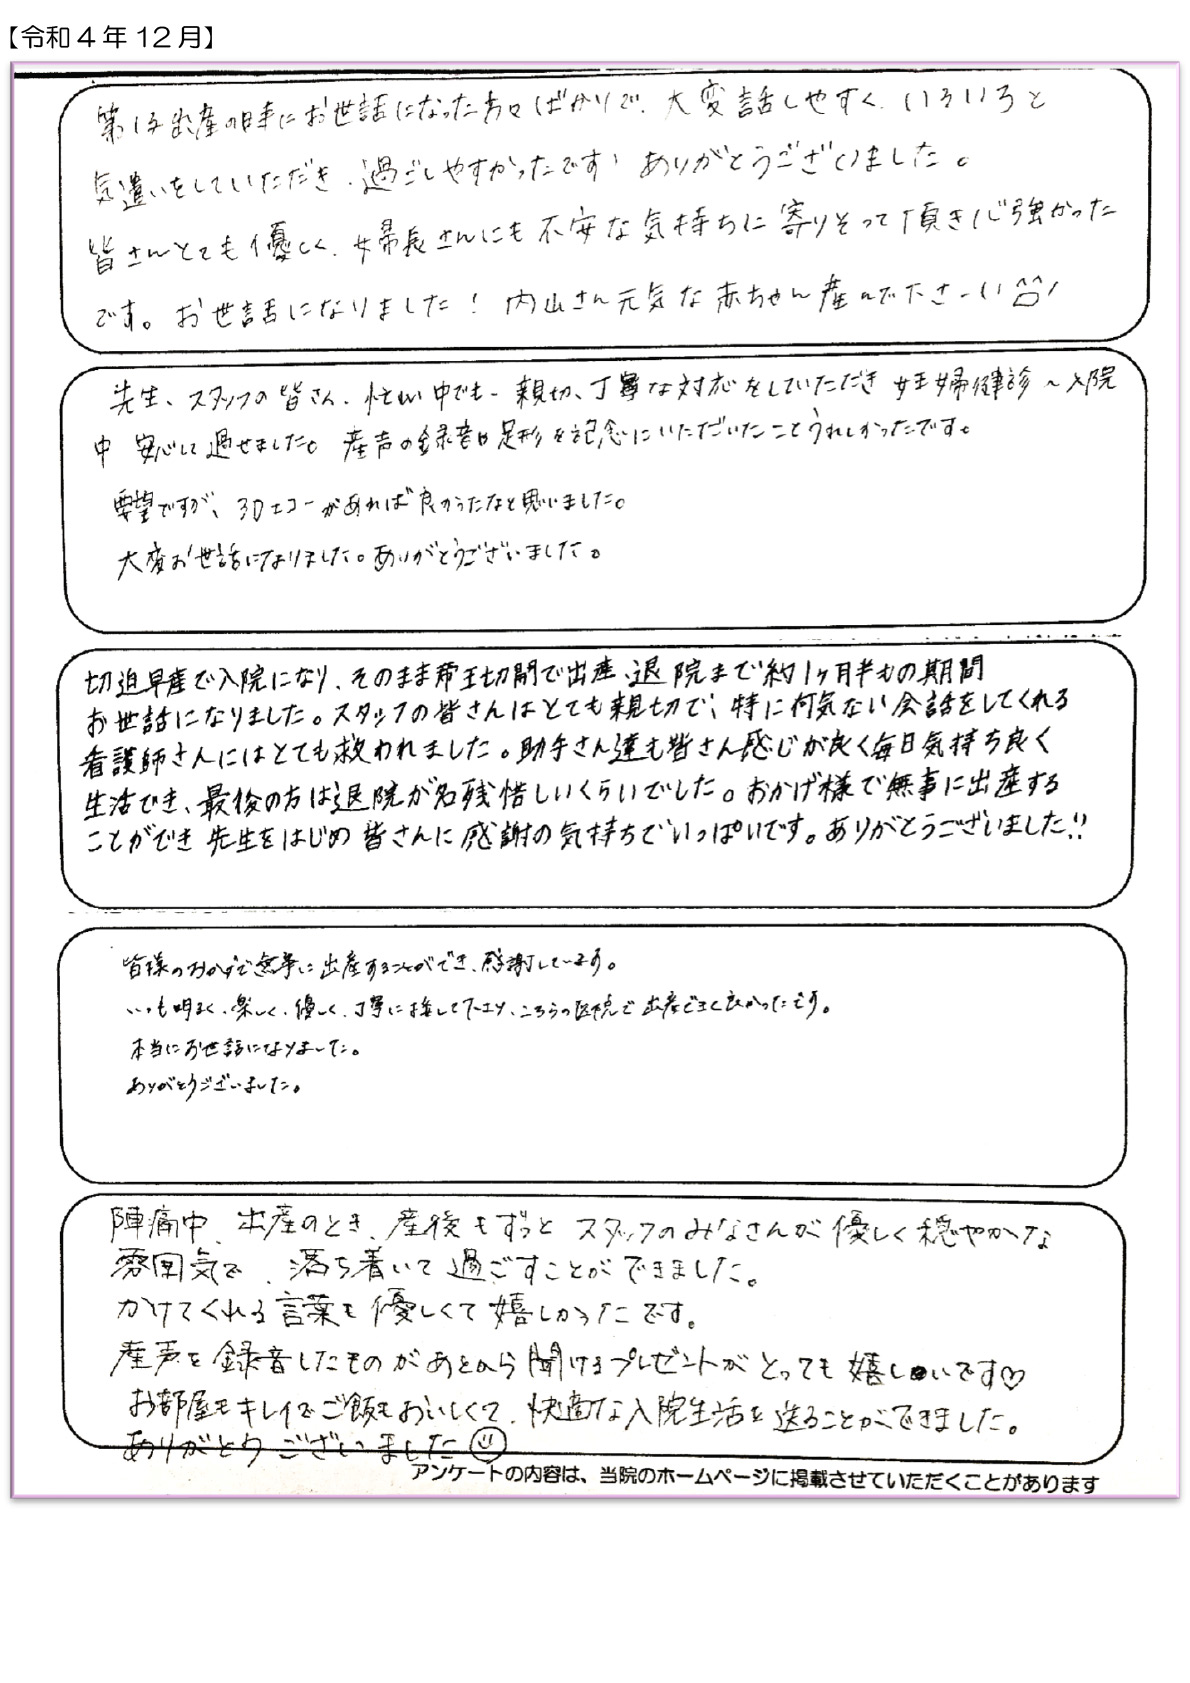 【令和4年12月】
第1子出産の時にお世話になった方々ばかりで、大変話しやすく、いろいろと
気遣いをしていただき、過ごしやすかったです! ありがとうございました。
皆さんとても優しく、婦長さんにも不安な気持ちに寄りそって頂き心強かった
です。お世話になりました! 内山さん元気な赤ちゃん産んで下さーい
先生、スタッフの皆さん、忙しい中でも、親切、丁寧な対応をしていただき 妊婦健診～入院
中 安心して過せました。産声の録音や足形を記念にいただいたことうれしかったです。
要望ですが、3Dエコーがあれば良かったなと思いました。
大変お世話になりました。ありがとうございました。
切迫早産で入院になり、そのまま帝王切開で出産、退院まで約1ヶ月半もの期間
お世話になりました。スタッフの皆さんはとても親切で、特に何気ない会話をしてくれる
看護師さんにはとても救われました。助手さん達も皆さん感じが良く毎日気持ち良く
生活でき、最後の方は退院が名残惜しいくらいでした。おかげ様で無事に出産する
ことができ 先生をはじめ 皆さんに感謝の気持ちでいっぱいです。ありがとうございました!!
皆様のおかげで無事に出産することができ、感謝しています。
いつも明るく、楽しく、優しく、丁寧に接して下さり、こちらの医院で出産できて良かったです。
本当にお世話になりました。
ありがとうございました。
陣痛中、出産のとき、産後もずっと スタッフのみなさんが優しく穏やかな
雰囲気で、落ち着いて過ごすことができました。
かけてくれる言葉も優しくて嬉しかったです。
産声を録音したものがあとから聞けるプレゼントがとっても嬉しいです♡
お部屋もキレイでご飯もおいしくて、快適な入院生活を送ることができました。
ありがとうございました
アンケートの内容は、当院のホームページに掲載させていただくことがあります